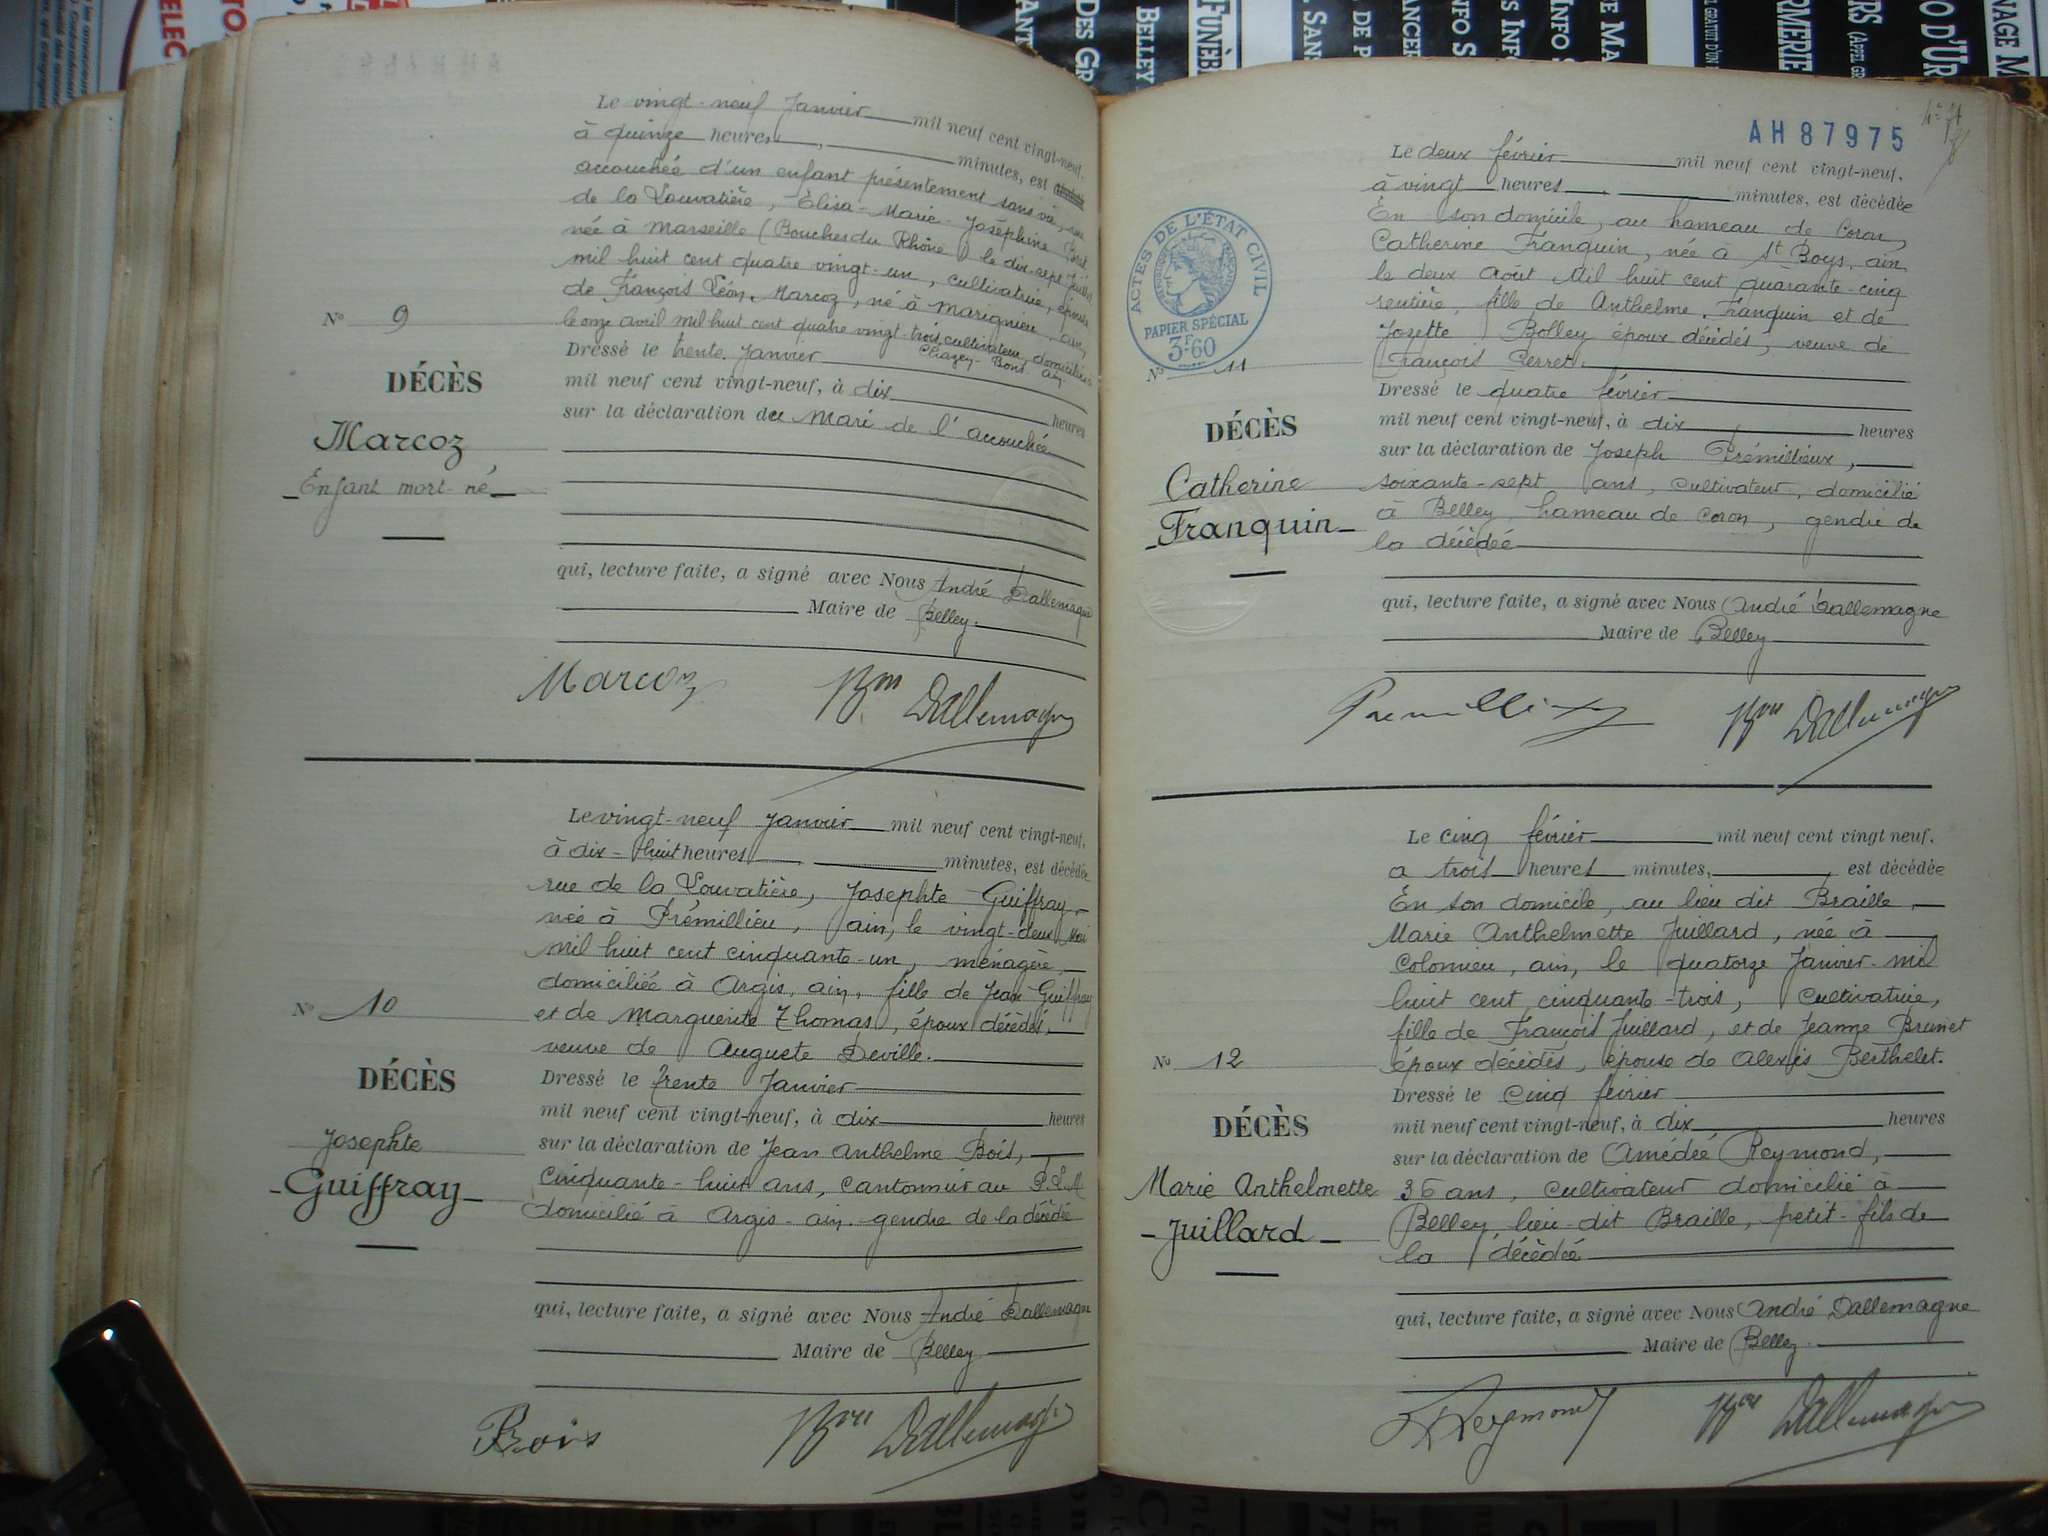 Le vingt-neuf Janvier mil neuf cent vingt-neuf,
à quinze heures, minutes, est
accouchée d'un enfant présentement sans vie, rue
de la Louvatière, Élisa-Marie-Joséphine
née à Marseille (Bouches du Rhône) le dix-sept Juillet
mil huit cent quatre vingt-un, cultivatrice, épouse
de François Léon Marcoz, né à Marignieu, ain,
le onze avril mil huit cent quatre vingt-trois, cultivateur, domiciliés
Chazey-Bons ain
N° 9
DÉCÈS
Marcoz
Enfant mort-né
Dressé le trente Janvier
mil neuf cent vingt-neuf, à dix heures
sur la déclaration du Mari de l'accouchée
qui, lecture faite, a signé avec Nous André Dallemagne
Maire de Belley.
Marcoz Bon Dallemagne
Le vingt-neuf Janvier mil neuf cent vingt-neuf,
à dix-huit heures, minutes, est décédée
rue de la Louvatière, Josephte Guiffray,
née à Prémillieu, ain, le vingt-deux Mai
mil huit cent cinquante-un, ménagère,
domiciliée à Argis, ain, fille de Jean Guiffray
et de Marguerite Thomas, époux décédés,
veuve de Auguste Deville.
N° 10
DÉCÈS
Josephte
Guiffray
Dressé le trente Janvier
mil neuf cent vingt-neuf, à dix heures
sur la déclaration de Jean Anthelme Bois,
Cinquante-huit ans, cantonnier au P.L.M
domicilié à Argis-ain-gendre de la décédée
qui, lecture faite, a signé avec Nous André Dallemagne
Maire de Belley
Bois Bon Dallemagne
AH 87975
Le deux février mil neuf cent vingt-neuf,
à vingt heures, minutes, est décédée
En son domicile, au hameau de Coron,
Catherine Franquin, née à St Boys, ain,
le deux Août Mil huit cent quarante-cinq
rentière, fille de Anthelme Franquin et de
Josette Bolley époux décédés, veuve de
François Perret.
ACTES DE L'ÉTAT CIVIL
PAPIER SPÉCIAL
3F.60
N° 11
DÉCÈS
Catherine
Franquin
Dressé le quatre février
mil neuf cent vingt-neuf, à dix heures
sur la déclaration de Joseph Prémillieux,
soixante-sept ans, cultivateur, domicilié
à Belley hameau de Coron, gendre de
la décédée
qui, lecture faite, a signé avec Nous André Dallemagne
Maire de Belley
Bon Dallemagne
Le cinq février mil neuf cent vingt neuf,
à trois heures minutes, est décédée
En son domicile, au lieu dit Braille,
Marie Anthelmette Juillard, née à
Colomieu, ain, le quatorze Janvier mil
huit cent cinquante-trois, Cultivatrice,
fille de François Juillard, et de Jeanne Brunet
époux décédés, épouse de Alexis Berthelet.
N° 12
DÉCÈS
Marie Anthelmette
Juillard
Dressé le Cinq février
mil neuf cent vingt-neuf, à dix heures
sur la déclaration de Amédée Reymond,
36 ans, cultivateur domicilié à
Belley lieu-dit Braille, petit-fils de
la décédée
qui, lecture faite, a signé avec Nous André Dallemagne
Maire de Belley
Reymond Bon Dallemagne